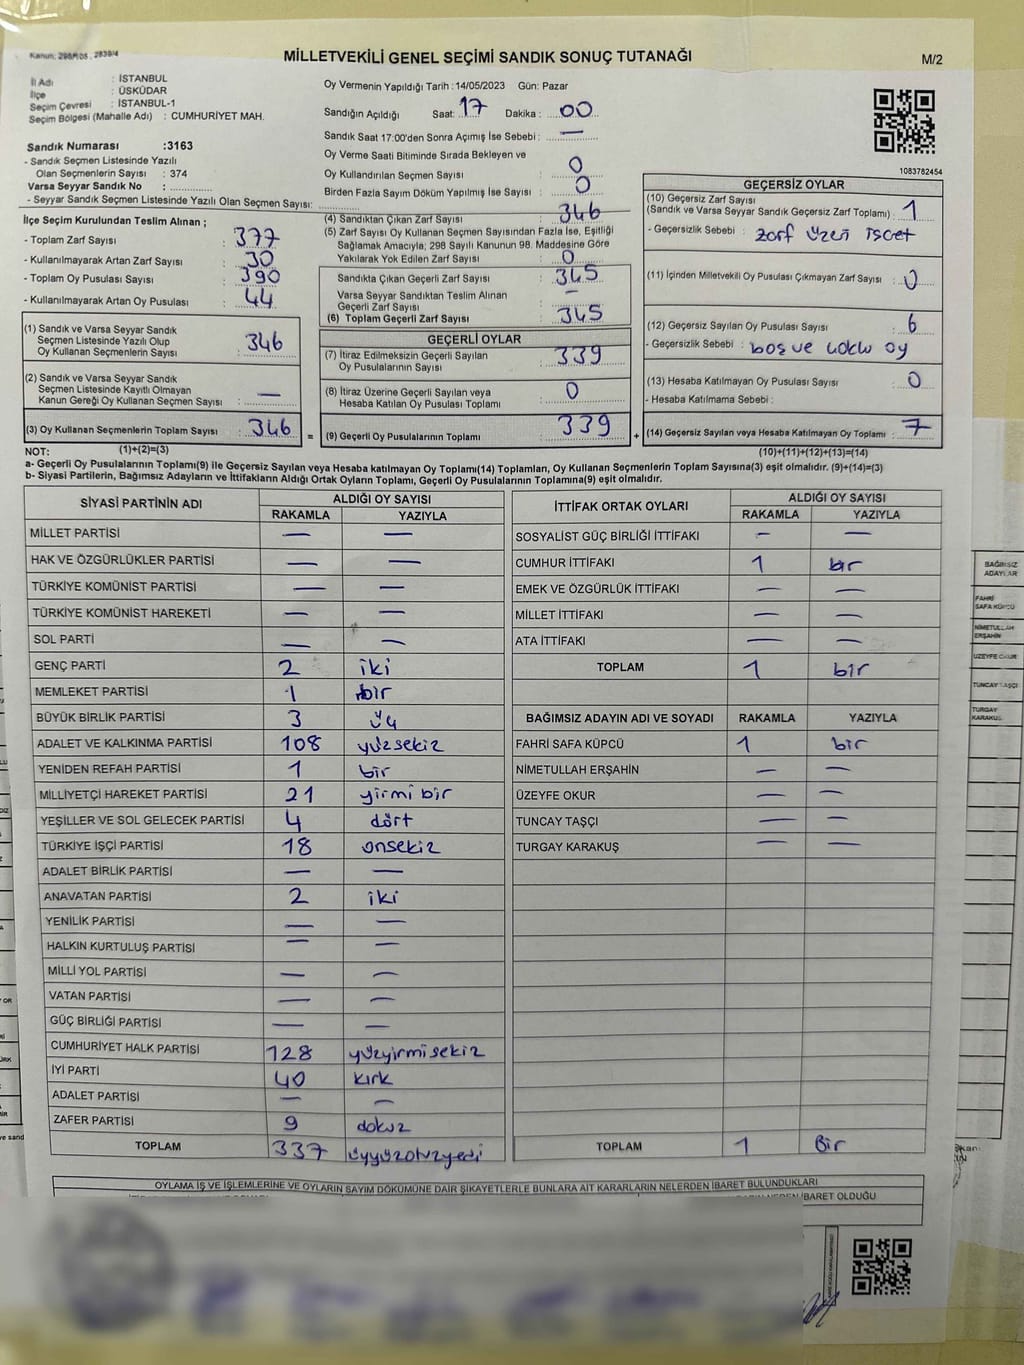 Kanun; 298/105 , 2839/4
MİLLETVEKİLİ GENEL SEÇİMİ SANDIK SONUÇ TUTANAĞI
M/2
İl Adı : İSTANBUL
İlçe : ÜSKÜDAR
Seçim Çevresi : İSTANBUL-1
Seçim Bölgesi (Mahalle Adı) : CUMHURİYET MAH.
Sandık Numarası :3163
- Sandık Seçmen Listesinde Yazılı
Olan Seçmenlerin Sayısı : 374
Varsa Seyyar Sandık No : ............
- Seyyar Sandık Seçmen Listesinde Yazılı Olan Seçmen Sayısı: ............
Oy Vermenin Yapıldığı Tarih : 14/05/2023 Gün: Pazar
Sandığın Açıldığı Saat: 17 Dakika : 00
Sandık Saat 17:00'den Sonra Açımış İse Sebebi : —
Oy Verme Saati Bitiminde Sırada Bekleyen ve
Oy Kullandırılan Seçmen Sayısı : 0
Birden Fazla Sayım Döküm Yapılmış İse Sayısı : 0
1083782454
İlçe Seçim Kurulundan Teslim Alınan ;
- Toplam Zarf Sayısı : 377
- Kullanılmayarak Artan Zarf Sayısı : 30
- Toplam Oy Pusulası Sayısı : 390
- Kullanılmayarak Artan Oy Pusulası : 44
(1) Sandık ve Varsa Seyyar Sandık
Seçmen Listesinde Yazılı Olup
Oy Kullanan Seçmenlerin Sayısı : 346
(2) Sandık ve Varsa Seyyar Sandık
Seçmen Listesinde Kayıtlı Olmayan
Kanun Gereği Oy Kullanan Seçmen Sayısı : —
(3) Oy Kullanan Seçmenlerin Toplam Sayısı : 346
(1)+(2)=(3)
(4) Sandıktan Çıkan Zarf Sayısı : 346
(5) Zarf Sayısı Oy Kullanan Seçmen Sayısından Fazla İse, Eşitliği
Sağlamak Amacıyla; 298 Sayılı Kanunun 98. Maddesine Göre
Yakılarak Yok Edilen Zarf Sayısı : 0
Sandıkta Çıkan Geçerli Zarf Sayısı : 345
Varsa Seyyar Sandıktan Teslim Alınan
Geçerli Zarf Sayısı : —
(6) Toplam Geçerli Zarf Sayısı : 345
GEÇERLİ OYLAR
(7) İtiraz Edilmeksizin Geçerli Sayılan
Oy Pusulalarının Sayısı : 339
(8) İtiraz Üzerine Geçerli Sayılan veya
Hesaba Katılan Oy Pusulası Toplamı : 0
= (9) Geçerli Oy Pusulalarının Toplamı : 339 +
GEÇERSİZ OYLAR
(10) Geçersiz Zarf Sayısı
(Sandık ve Varsa Seyyar Sandık Geçersiz Zarf Toplamı) : 1
- Geçersizlik Sebebi : zarf üzeri işaret
(11) İçinden Milletvekili Oy Pusulası Çıkmayan Zarf Sayısı : 0
(12) Geçersiz Sayılan Oy Pusulası Sayısı : 6
- Geçersizlik Sebebi : boş ve çoklu oy
(13) Hesaba Katılmayan Oy Pusulası Sayısı : 0
- Hesaba Katılmama Sebebi :
(14) Geçersiz Sayılan veya Hesaba Katılmayan Oy Toplamı : 7
(10)+(11)+(12)+(13)=(14)
NOT:
a- Geçerli Oy Pusulalarının Toplamı(9) ile Geçersiz Sayılan veya Hesaba katılmayan Oy Toplamı(14) Toplamları, Oy Kullanan Seçmenlerin Toplam Sayısına(3) eşit olmalıdır. (9)+(14)=(3)
b- Siyasi Partilerin, Bağımsız Adayların ve İttifakların Aldığı Ortak Oyların Toplamı, Geçerli Oy Pusulalarının Toplamına(9) eşit olmalıdır.
SİYASİ PARTİNİN ADI ALDIĞI OY SAYISI
RAKAMLA YAZIYLA
MİLLET PARTİSİ — —
HAK VE ÖZGÜRLÜKLER PARTİSİ — —
TÜRKİYE KOMÜNİST PARTİSİ — —
TÜRKİYE KOMÜNİST HAREKETİ — —
SOL PARTİ — —
GENÇ PARTİ 2 iki
MEMLEKET PARTİSİ 1 bir
BÜYÜK BİRLİK PARTİSİ 3 üç
ADALET VE KALKINMA PARTİSİ 108 yüzsekiz
YENİDEN REFAH PARTİSİ 1 bir
MİLLİYETÇİ HAREKET PARTİSİ 21 yirmi bir
YEŞİLLER VE SOL GELECEK PARTİSİ 4 dört
TÜRKİYE İŞÇİ PARTİSİ 18 onsekiz
ADALET BİRLİK PARTİSİ — —
ANAVATAN PARTİSİ 2 iki
YENİLİK PARTİSİ — —
HALKIN KURTULUŞ PARTİSİ — —
MİLLİ YOL PARTİSİ — —
VATAN PARTİSİ — —
GÜÇ BİRLİĞİ PARTİSİ — —
CUMHURİYET HALK PARTİSİ 128 yüzyirmisekiz
İYİ PARTİ 40 kırk
ADALET PARTİSİ — —
ZAFER PARTİSİ 9 dokuz
TOPLAM 337 üçyüzotuzyedi
İTTİFAK ORTAK OYLARI ALDIĞI OY SAYISI
RAKAMLA YAZIYLA
SOSYALİST GÜÇ BİRLİĞİ İTTİFAKI — —
CUMHUR İTTİFAKI 1 bir
EMEK VE ÖZGÜRLÜK İTTİFAKI — —
MİLLET İTTİFAKI — —
ATA İTTİFAKI — —
TOPLAM 1 bir
BAĞIMSIZ ADAYIN ADI VE SOYADI RAKAMLA YAZIYLA
FAHRİ SAFA KÜPCÜ 1 bir
NİMETULLAH ERŞAHİN — —
ÜZEYFE OKUR — —
TUNCAY TAŞÇI — —
TURGAY KARAKUŞ — —
TOPLAM 1 Bir
OYLAMA İŞ VE İŞLEMLERİNE VE OYLARIN SAYIM DÖKÜMÜNE DAİR ŞİKAYETLERLE BUNLARA AİT KARARLARIN NELERDEN İBARET BULUNDUKLARI
İBARET OLDUĞU
BAĞIMSIZ
ADAYLAR
FAHRİ
SAFA KÜPCÜ
NİMETULLAH
ERŞAHİN
ÜZEYFE OKUR
TUNCAY TAŞÇI
TURGAY
KARAKUŞ